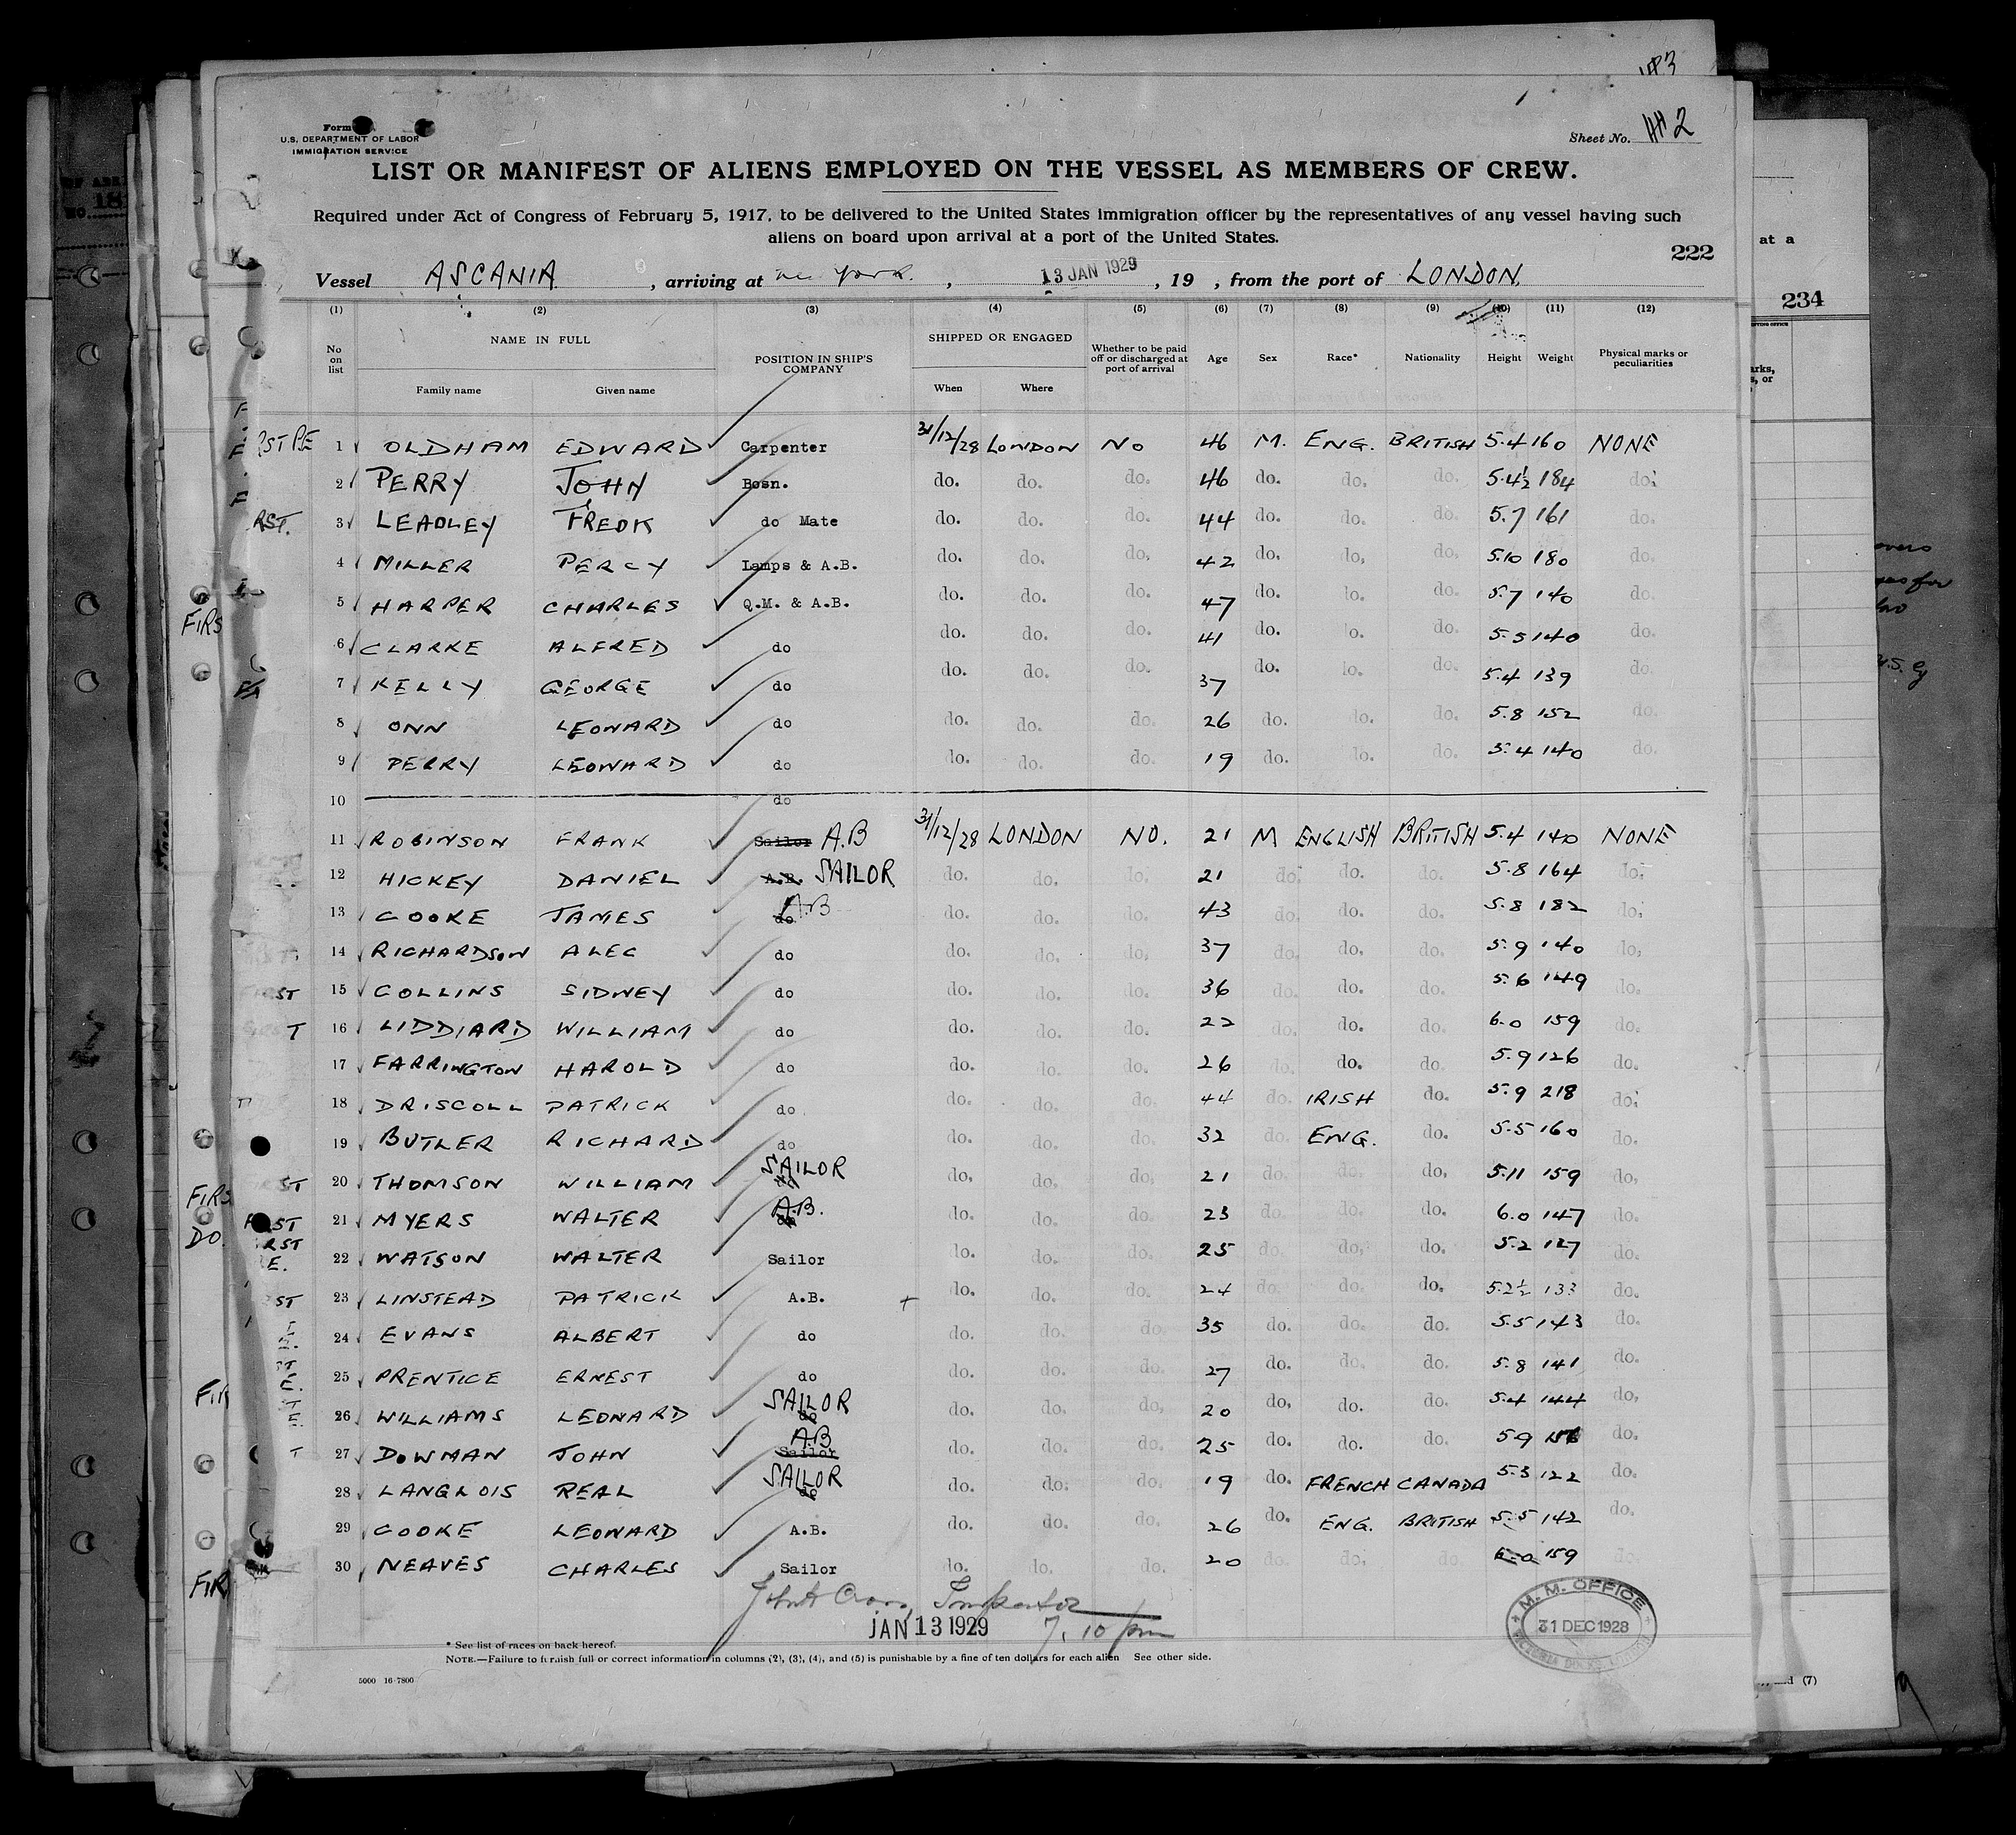 Sheet No. 2
Form
U.S. DEPARTMENT OF LABOR
IMMIGRATION SERVICE
LIST OR MANIFEST OF ALIENS EMPLOYED ON THE VESSEL AS MEMBERS OF CREW.
Required under Act of Congress of February 5, 1917, to be delivered to the United States immigration officer by the representatives of any vessel having such
aliens on board upon arrival at a port of the United States.
222
Vessel ASCANIA, arriving at New York, 13 JAN 1929, 19 , from the port of LONDON.
(1) (2) (3) (4) (5) (6) (7) (8) (9) (10) (11) (12)
No on list NAME IN FULL Family name Given name POSITION IN SHIP'S COMPANY SHIPPED OR ENGAGED When Where Whether to be paid off or discharged at port of arrival Age Sex Race* Nationality Height Weight Physical marks or peculiarities
1 OLDHAM EDWARD Carpenter 31/12/28 LONDON NO 46 M. ENG. BRITISH 5.4 160 NONE
2 PERRY JOHN Bosn. do. do. do. 46 do. do. do. 5.4½ 184 do.
3 LEADLEY FREDK do Mate do. do. do. 44 do. do. do. 5.7 161 do.
4 MILLER PERCY Lamps & A.B. do. do. do. 42 do. do. do. 5.10 180 do.
5 HARPER CHARLES Q.M. & A.B. do. do. do. 47 do. do. do. 5.7 140 do.
6 CLARKE ALFRED do do. do. do. 41 do. do. do. 5.5 140 do.
7 KELLY GEORGE do do. do. do. 37 do. do. do. 5.4 139 do.
8 ONN LEONARD do do. do. do. 26 do. do. do. 5.8 152 do.
9 PERRY LEONARD do do. do. do. 19 do. do. do. 5.4 140 do.
10 do
11 ROBINSON FRANK Sailor A.B 31/12/28 LONDON NO. 21 M ENGLISH BRITISH 5.4 140 NONE
12 HICKEY DANIEL A.B. SAILOR do. do. do. 21 do. do. do. 5.8 164 do.
13 COOKE JAMES do A.B do. do. do. 43 do. do. do. 5.8 182 do.
14 RICHARDSON ALEC do do. do. do. 37 do. do. do. 5.9 140 do.
15 COLLINS SIDNEY do do. do. do. 36 do. do. do. 5.6 149 do.
16 LIDDIARD WILLIAM do do. do. do. 22 do. do. do. 6.0 159 do.
17 FARRINGTON HAROLD do do. do. do. 26 do. do. do. 5.9 126 do.
18 DRISCOLL PATRICK do do. do. do. 44 do. IRISH do. 5.9 218 do.
19 BUTLER RICHARD do do. do. do. 32 do. ENG. do. 5.5 160 do.
20 THOMSON WILLIAM SAILOR do. do. do. 21 do. do. do. 5.11 159 do.
21 MYERS WALTER A.B. do do. do. do. 23 do. do. do. 6.0 147 do.
22 WATSON WALTER Sailor do. do. do. 25 do. do. do. 5.2 127 do.
23 LINSTEAD PATRICK A.B. + do. do. do. 24 do. do. do. 5.2½ 133 do.
24 EVANS ALBERT do do. do. do. 35 do. do. do. 5.5 143 do.
25 PRENTICE ERNEST do do. do. do. 27 do. do. do. 5.8 141 do.
26 WILLIAMS LEONARD SAILOR do do. do. do. 20 do. do. do. 5.4 144 do.
27 DOWMAN JOHN A.B Sailor do. do. do. 25 do. do. do. 5.9 do.
28 LANGLOIS REAL SAILOR do do. do. do. 19 do. FRENCH CANADA 5.3 122 do.
29 COOKE LEONARD A.B. do. do. do. 26 do. ENG. BRITISH 5.5 142 do.
30 NEAVES CHARLES Sailor do. do. do. 20 do. do. do. 6.0 159 do.
Inspector
JAN 13 1929 7.10 pm
M. M. OFFICE
31 DEC 1928
* See list of races on back hereof.
NOTE.—Failure to furnish full or correct information in columns (2), (3), (4), and (5) is punishable by a fine of ten dollars for each alien See other side.
5000 16-7800
at a
234
(7)